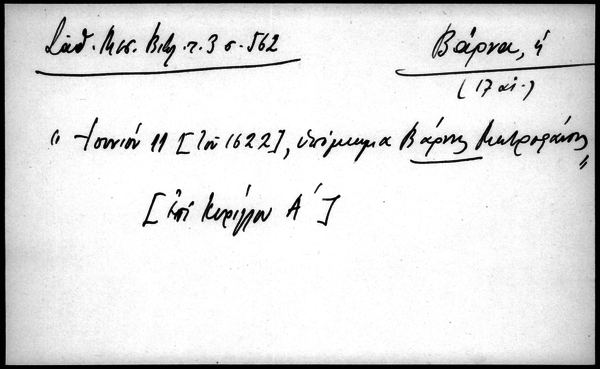 Σάθ. Μεσ. Βιβ. τ. 3 σ. 562
Βάρνα, ἡ
(17 αἰ.)
" Ἰουνίου 11 [τοῦ 1622], ὑπόμνημα Βάρνης Μητροφάνης "
[ἐπὶ Κυρίλλου Α´]